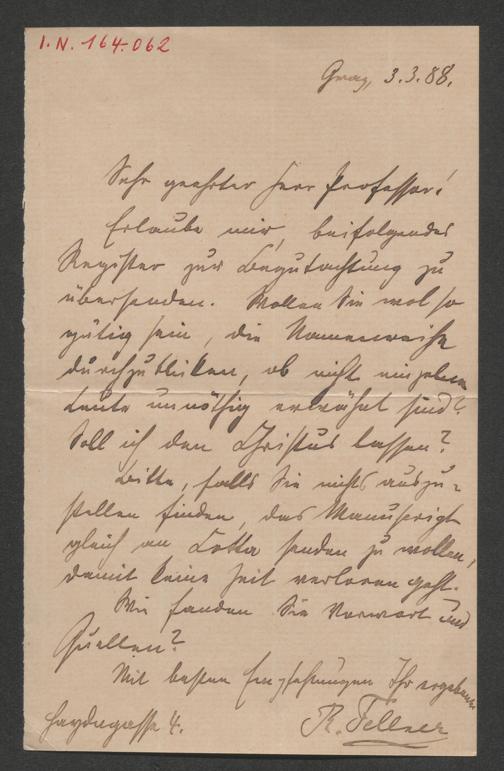 I.N. 164.062
Graz, 3.3.88.
Sehr geehrter Herr Professor!
Erlaube mir, beifolgendes
Register zur Begutachtung zu
übersenden. Wollen Sie wol so
gütig sein, die Namenreihe
durchzublicken, ob nicht einzelne
Leute unnöthig erwähnt sind?
Soll ich den Christus lassen?
Bitte, falls Sie nichts auszu-
stellen finden, das Manuscript
gleich an Cotta senden zu wollen,
damit keine Zeit verloren geht.
Wie fanden Sie Vorwort und
Quellen?
Mit besten Empfehlungen Ihr ergebener
Haydngasse 4. R. Fellner